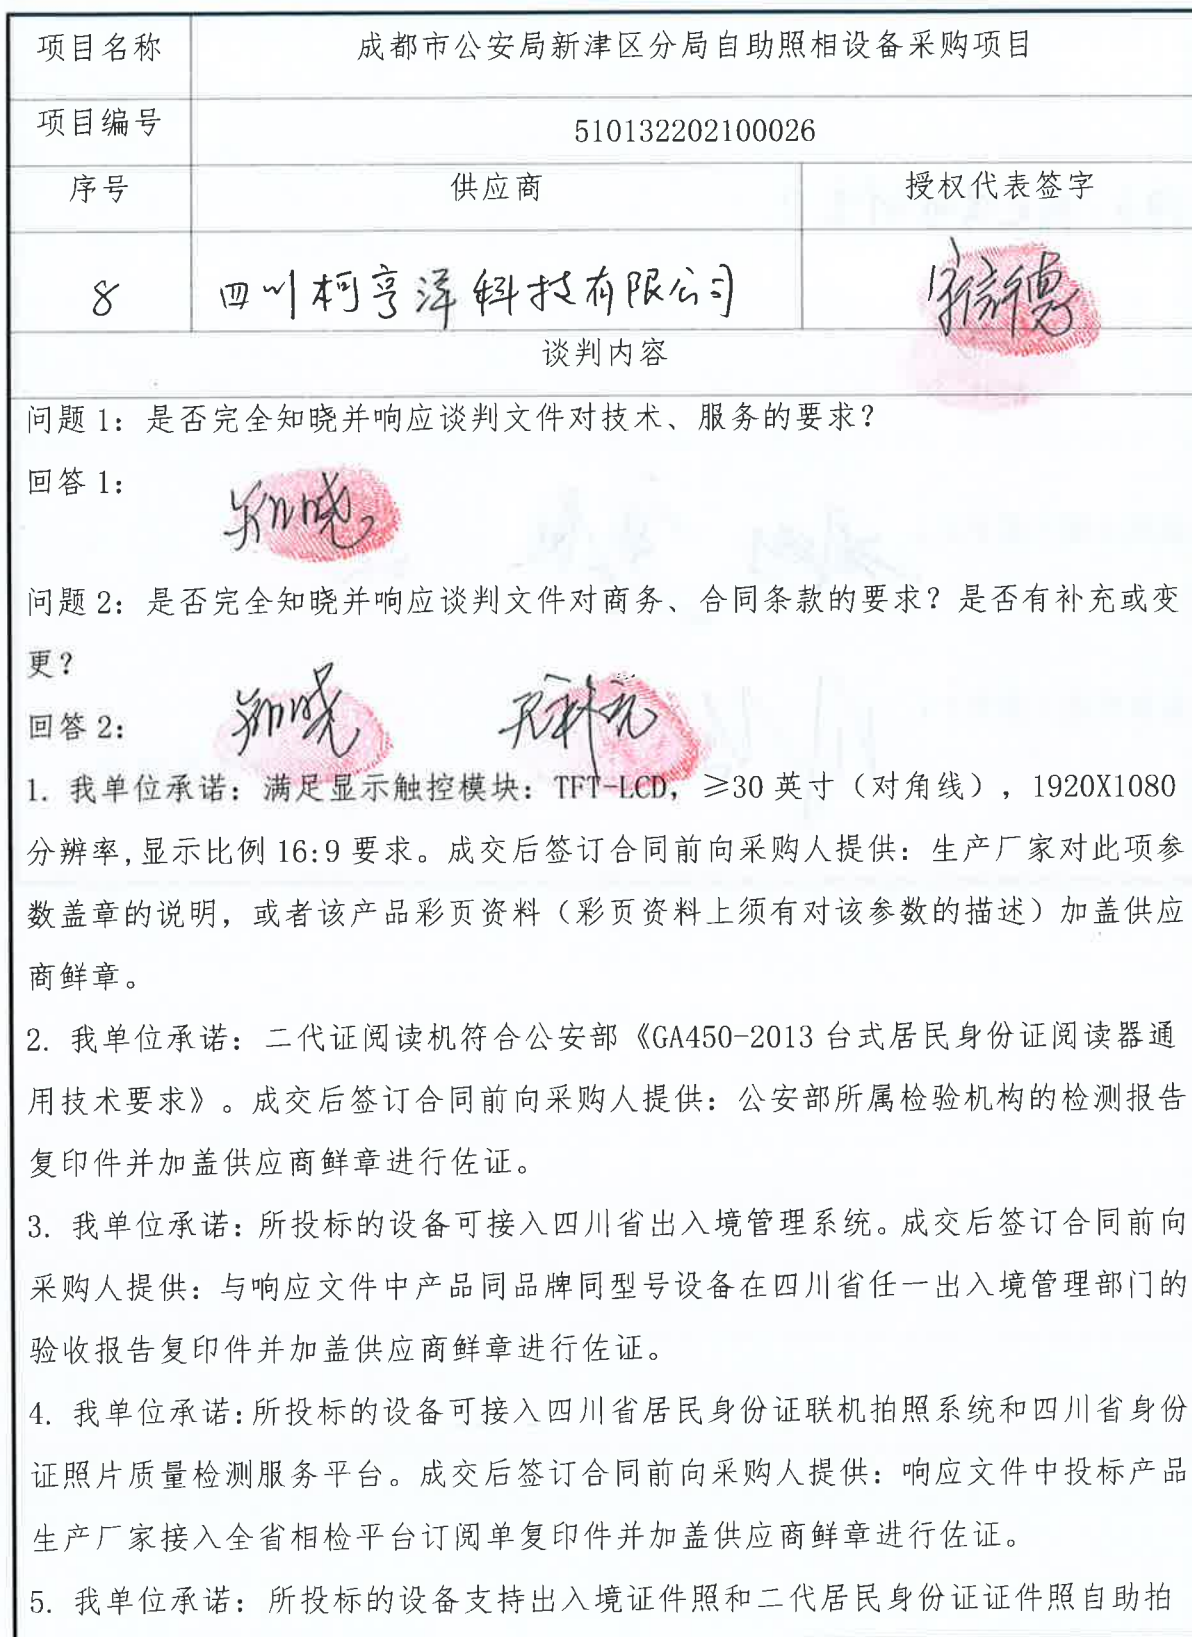 项目名称 成都市公安局新津区分局自助照相设备采购项目
项目编号 510132202100026
序号 供应商 授权代表签字
8 四川柯亨洋科技有限公司
谈判内容
问题1：是否完全知晓并响应谈判文件对技术、服务的要求？
回答1：
问题2：是否完全知晓并响应谈判文件对商务、合同条款的要求？是否有补充或变
更？
回答2：
1. 我单位承诺：满足显示触控模块：TFT-LCD，≥30英寸（对角线），1920X1080
分辨率,显示比例16:9要求。成交后签订合同前向采购人提供：生产厂家对此项参
数盖章的说明，或者该产品彩页资料（彩页资料上须有对该参数的描述）加盖供应
商鲜章。
2. 我单位承诺：二代证阅读机符合公安部《GA450-2013台式居民身份证阅读器通
用技术要求》。成交后签订合同前向采购人提供：公安部所属检验机构的检测报告
复印件并加盖供应商鲜章进行佐证。
3. 我单位承诺：所投标的设备可接入四川省出入境管理系统。成交后签订合同前向
采购人提供：与响应文件中产品同品牌同型号设备在四川省任一出入境管理部门的
验收报告复印件并加盖供应商鲜章进行佐证。
4. 我单位承诺：所投标的设备可接入四川省居民身份证联机拍照系统和四川省身份
证照片质量检测服务平台。成交后签订合同前向采购人提供：响应文件中投标产品
生产厂家接入全省相检平台订阅单复印件并加盖供应商鲜章进行佐证。
5. 我单位承诺：所投标的设备支持出入境证件照和二代居民身份证证件照自助拍